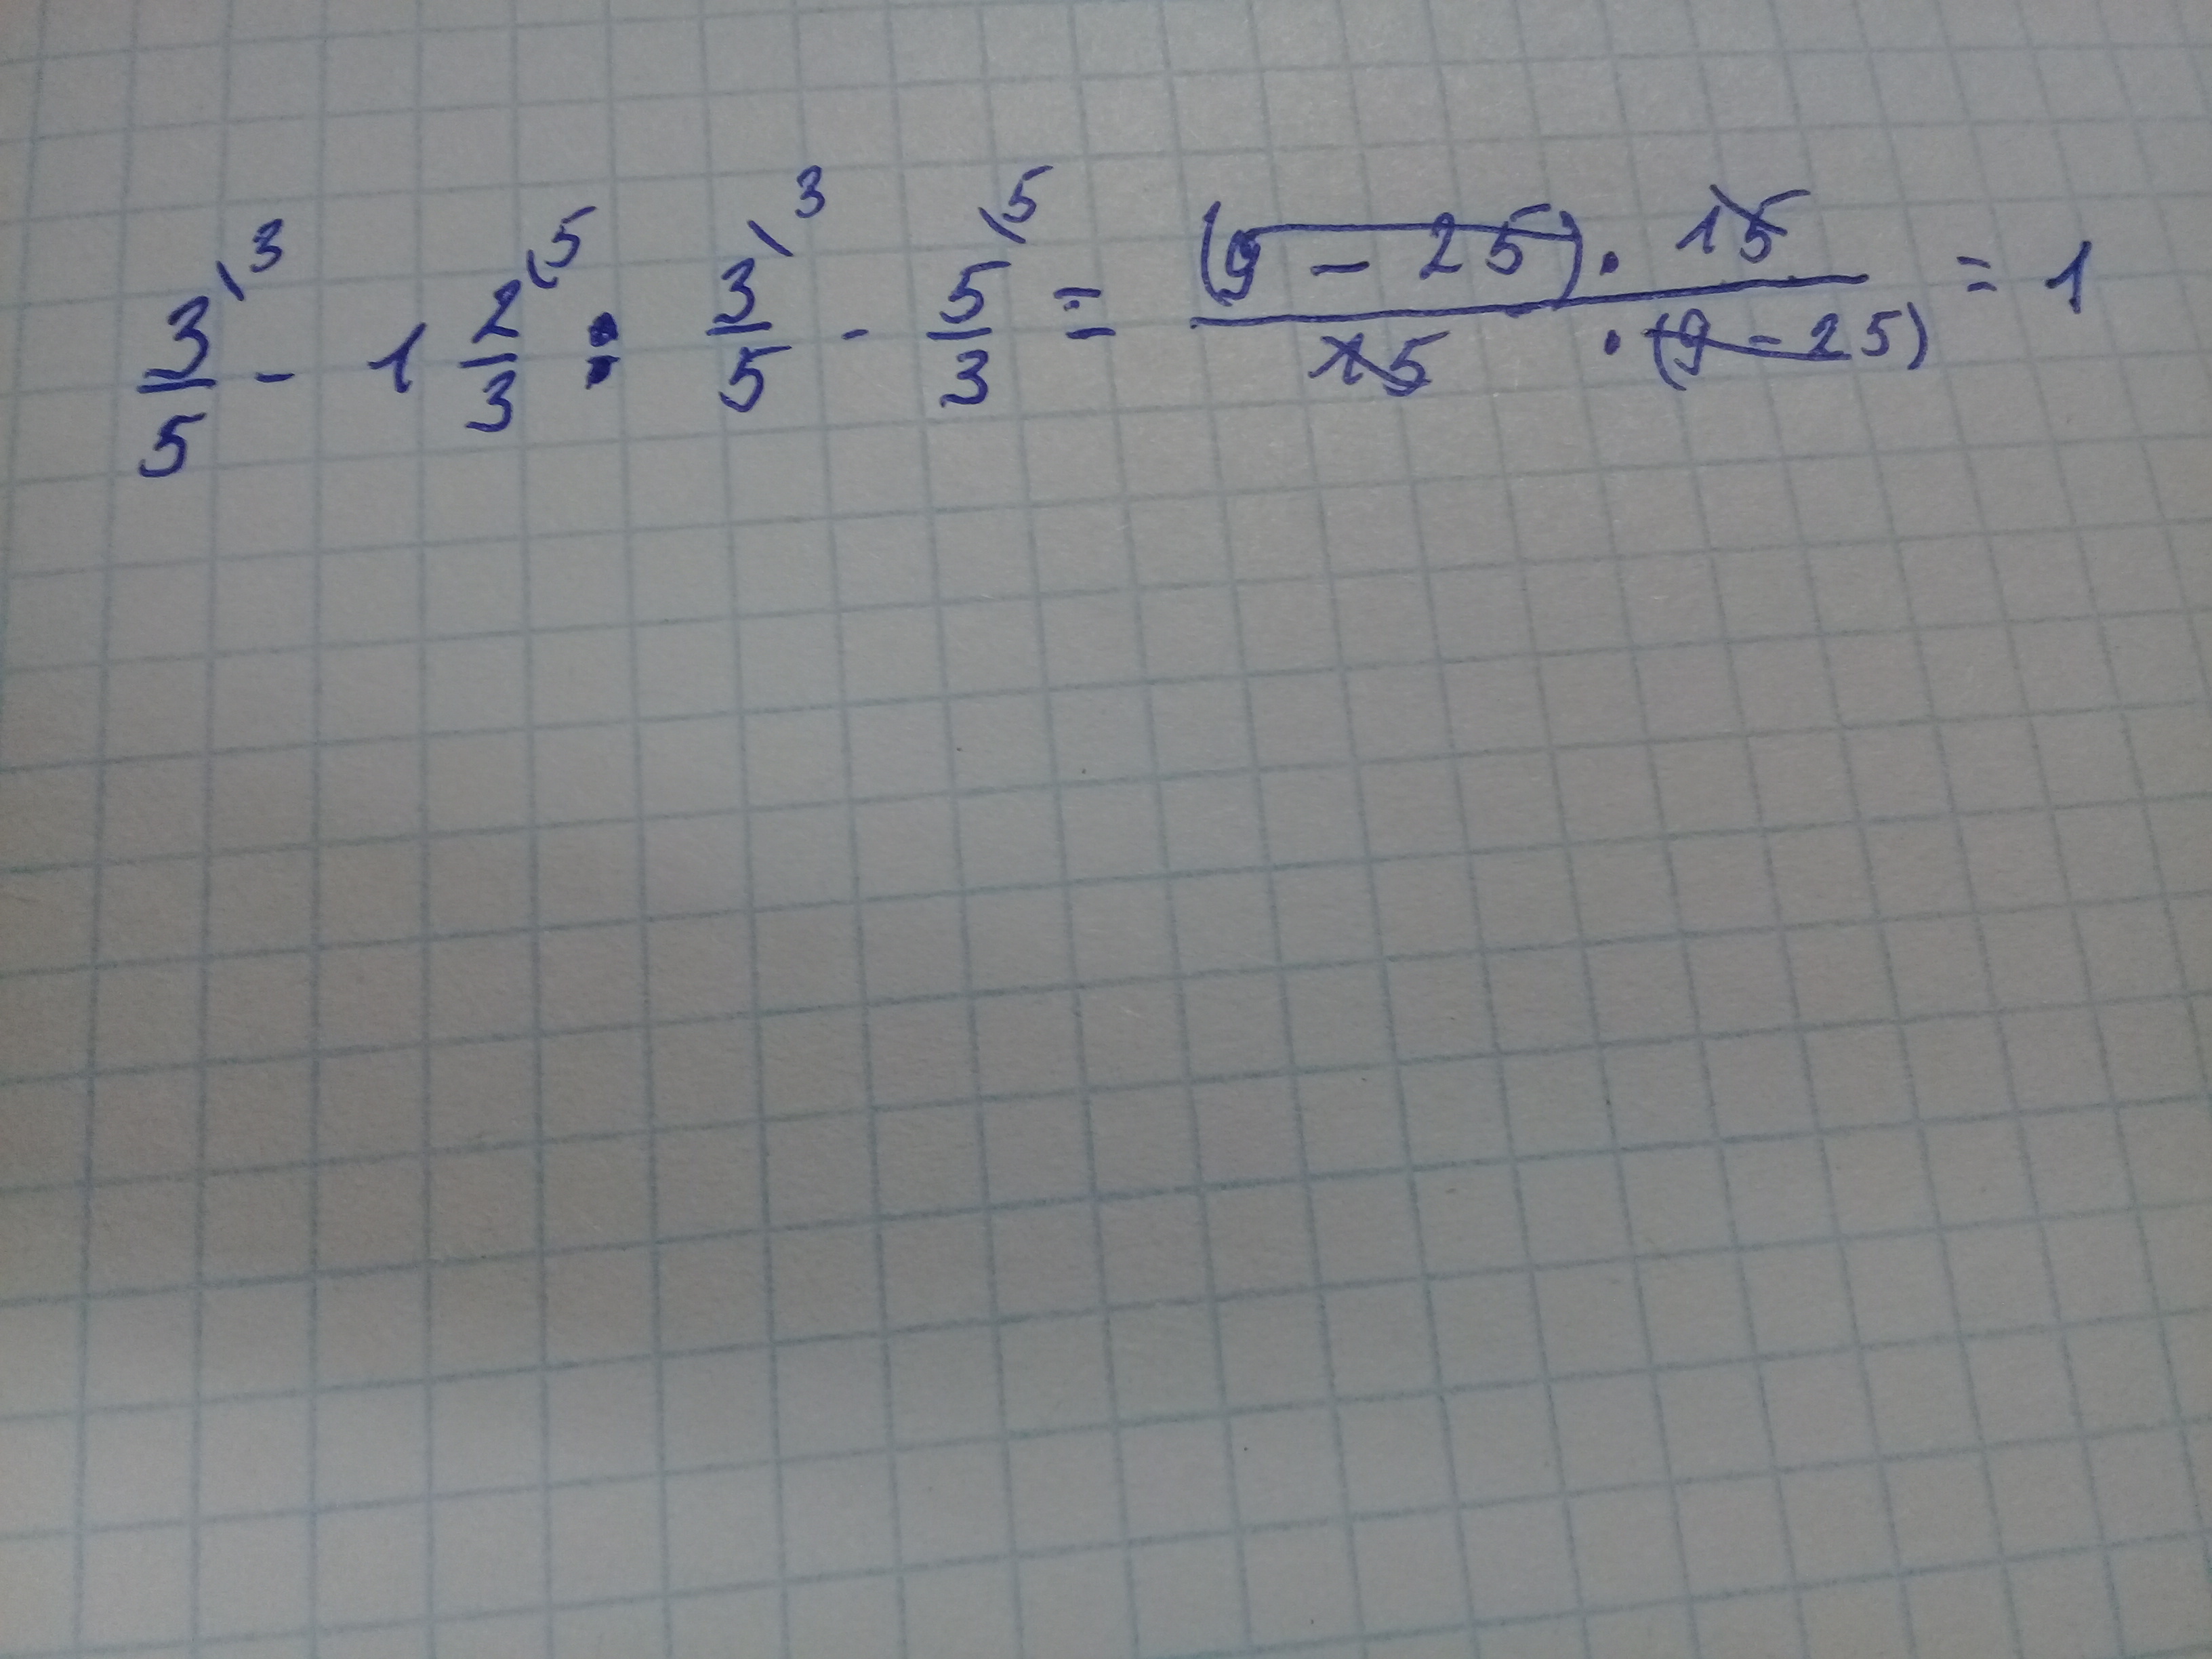 3/5 \3 - 1 2/3 \5 : 3/5 \3 - 5/3 \5 = (9 - 25) · 15 / 15 · (9 - 25) = 1